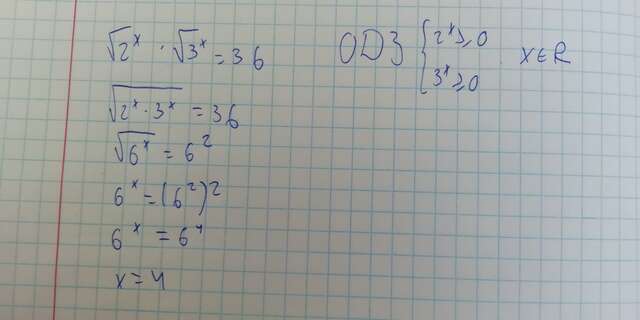 √2^x · √3^x = 36
ОДЗ { 2^x ≥ 0
3^x ≥ 0
x ∈ R
√(2^x · 3^x) = 36
√(6^x) = 6^2
6^x = (6^2)^2
6^x = 6^4
x = 4